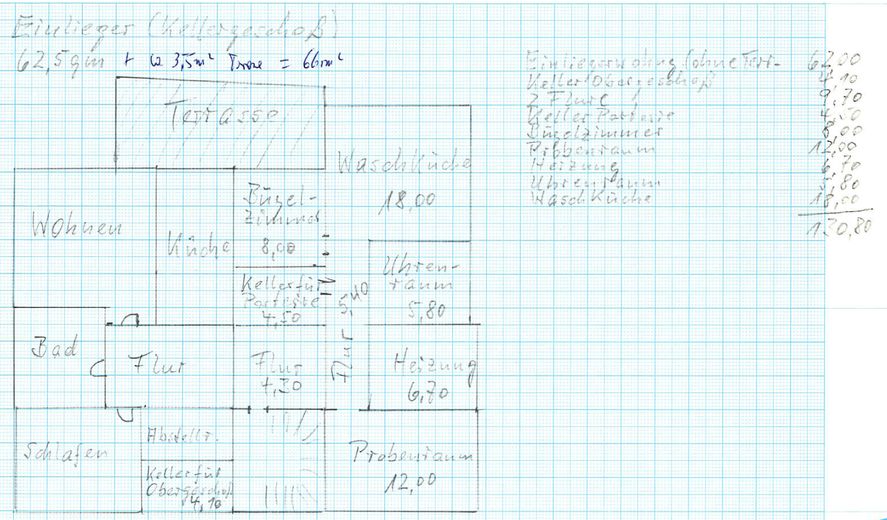 Einlieger (Kellergeschoß)
62,5qm + ca 3,5m² Terrasse = 66m²
Einliegerwohnung (ohne Terr- 62,00
Keller Obergeschoß 4,10
2 Flure 9,70
Keller Parterre 4,50
Bügelzimmer 8,00
Probenraum 12,00
Heizung 6,70
Uhrenraum 5,80
Waschküche 18,00
130,80
Terrasse
Waschküche
18,00
Wohnen
Küche
Bügel-
zimmer
8,00
Keller für
Parterre
4,50
Uhren-
raum
5,80
Flur 5,40
Bad
Flur
Flur
4,30
Heizung
6,70
Schlafen
Abstellr.
Keller für
Obergeschoß
4,10
Probenraum
12,00